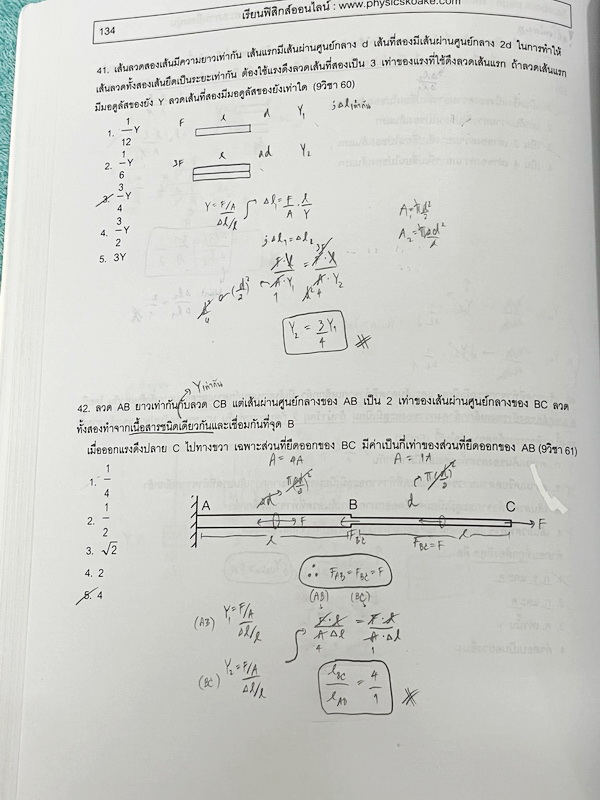 134
เรียนฟิสิกส์ออนไลน์ : www.physicskoake.com
41. เส้นลวดสองเส้นมีความยาวเท่ากัน เส้นแรกมีเส้นผ่านศูนย์กลาง d เส้นที่สองมีเส้นผ่านศูนย์กลาง 2d ในการทำให้
เส้นลวดทั้งสองเส้นยืดเป็นระยะเท่ากัน ต้องใช้แรงดึงลวดเส้นที่สองเป็น 3 เท่าของแรงที่ใช้ดึงลวดเส้นแรก ถ้าลวดเส้นแรก
มีมอดูลัสของยัง Y ลวดเส้นที่สองมีมอดูลัสของยังเท่าใด (9วิชา 60)
1. 1/12 Y
2. 1/6 Y
3. 3/4 Y
4. 3/2 Y
5. 3Y
F l d Y₁ ; Δl เท่ากัน
3F l 2d Y₂
Y = F/A / Δl/l
Δl = F/A · l/Y
; Δl₁ = Δl₂
Y₂ = 3/4 Y₁
Y เท่ากัน
42. ลวด AB ยาวเท่ากันกับลวด CB แต่เส้นผ่านศูนย์กลางของ AB เป็น 2 เท่าของเส้นผ่านศูนย์กลางของ BC ลวด
ทั้งสองทำจากเนื้อสารชนิดเดียวกันและเชื่อมกันที่จุด B
เมื่อออกแรงดึงปลาย C ไปทางขวา เฉพาะส่วนที่ยืดออกของ BC มีค่าเป็นกี่เท่าของส่วนที่ยืดออกของ AB (9วิชา 61)
1. 1/4
2. 1/2
3. √2
4. 2
5. 4
A = 4A A = 1A
2d d
A B C
F F
l F_BC F_BC = F l
∴ F_AB = F_BC = F
(AB) (BC)
(AB) Y₁ = F/A / Δl/l
F·l / A Δl = F·l / A·Δl
4 1
(BC) Y₂ = F/A / Δl/l
l_BC / l_AB = 4/1